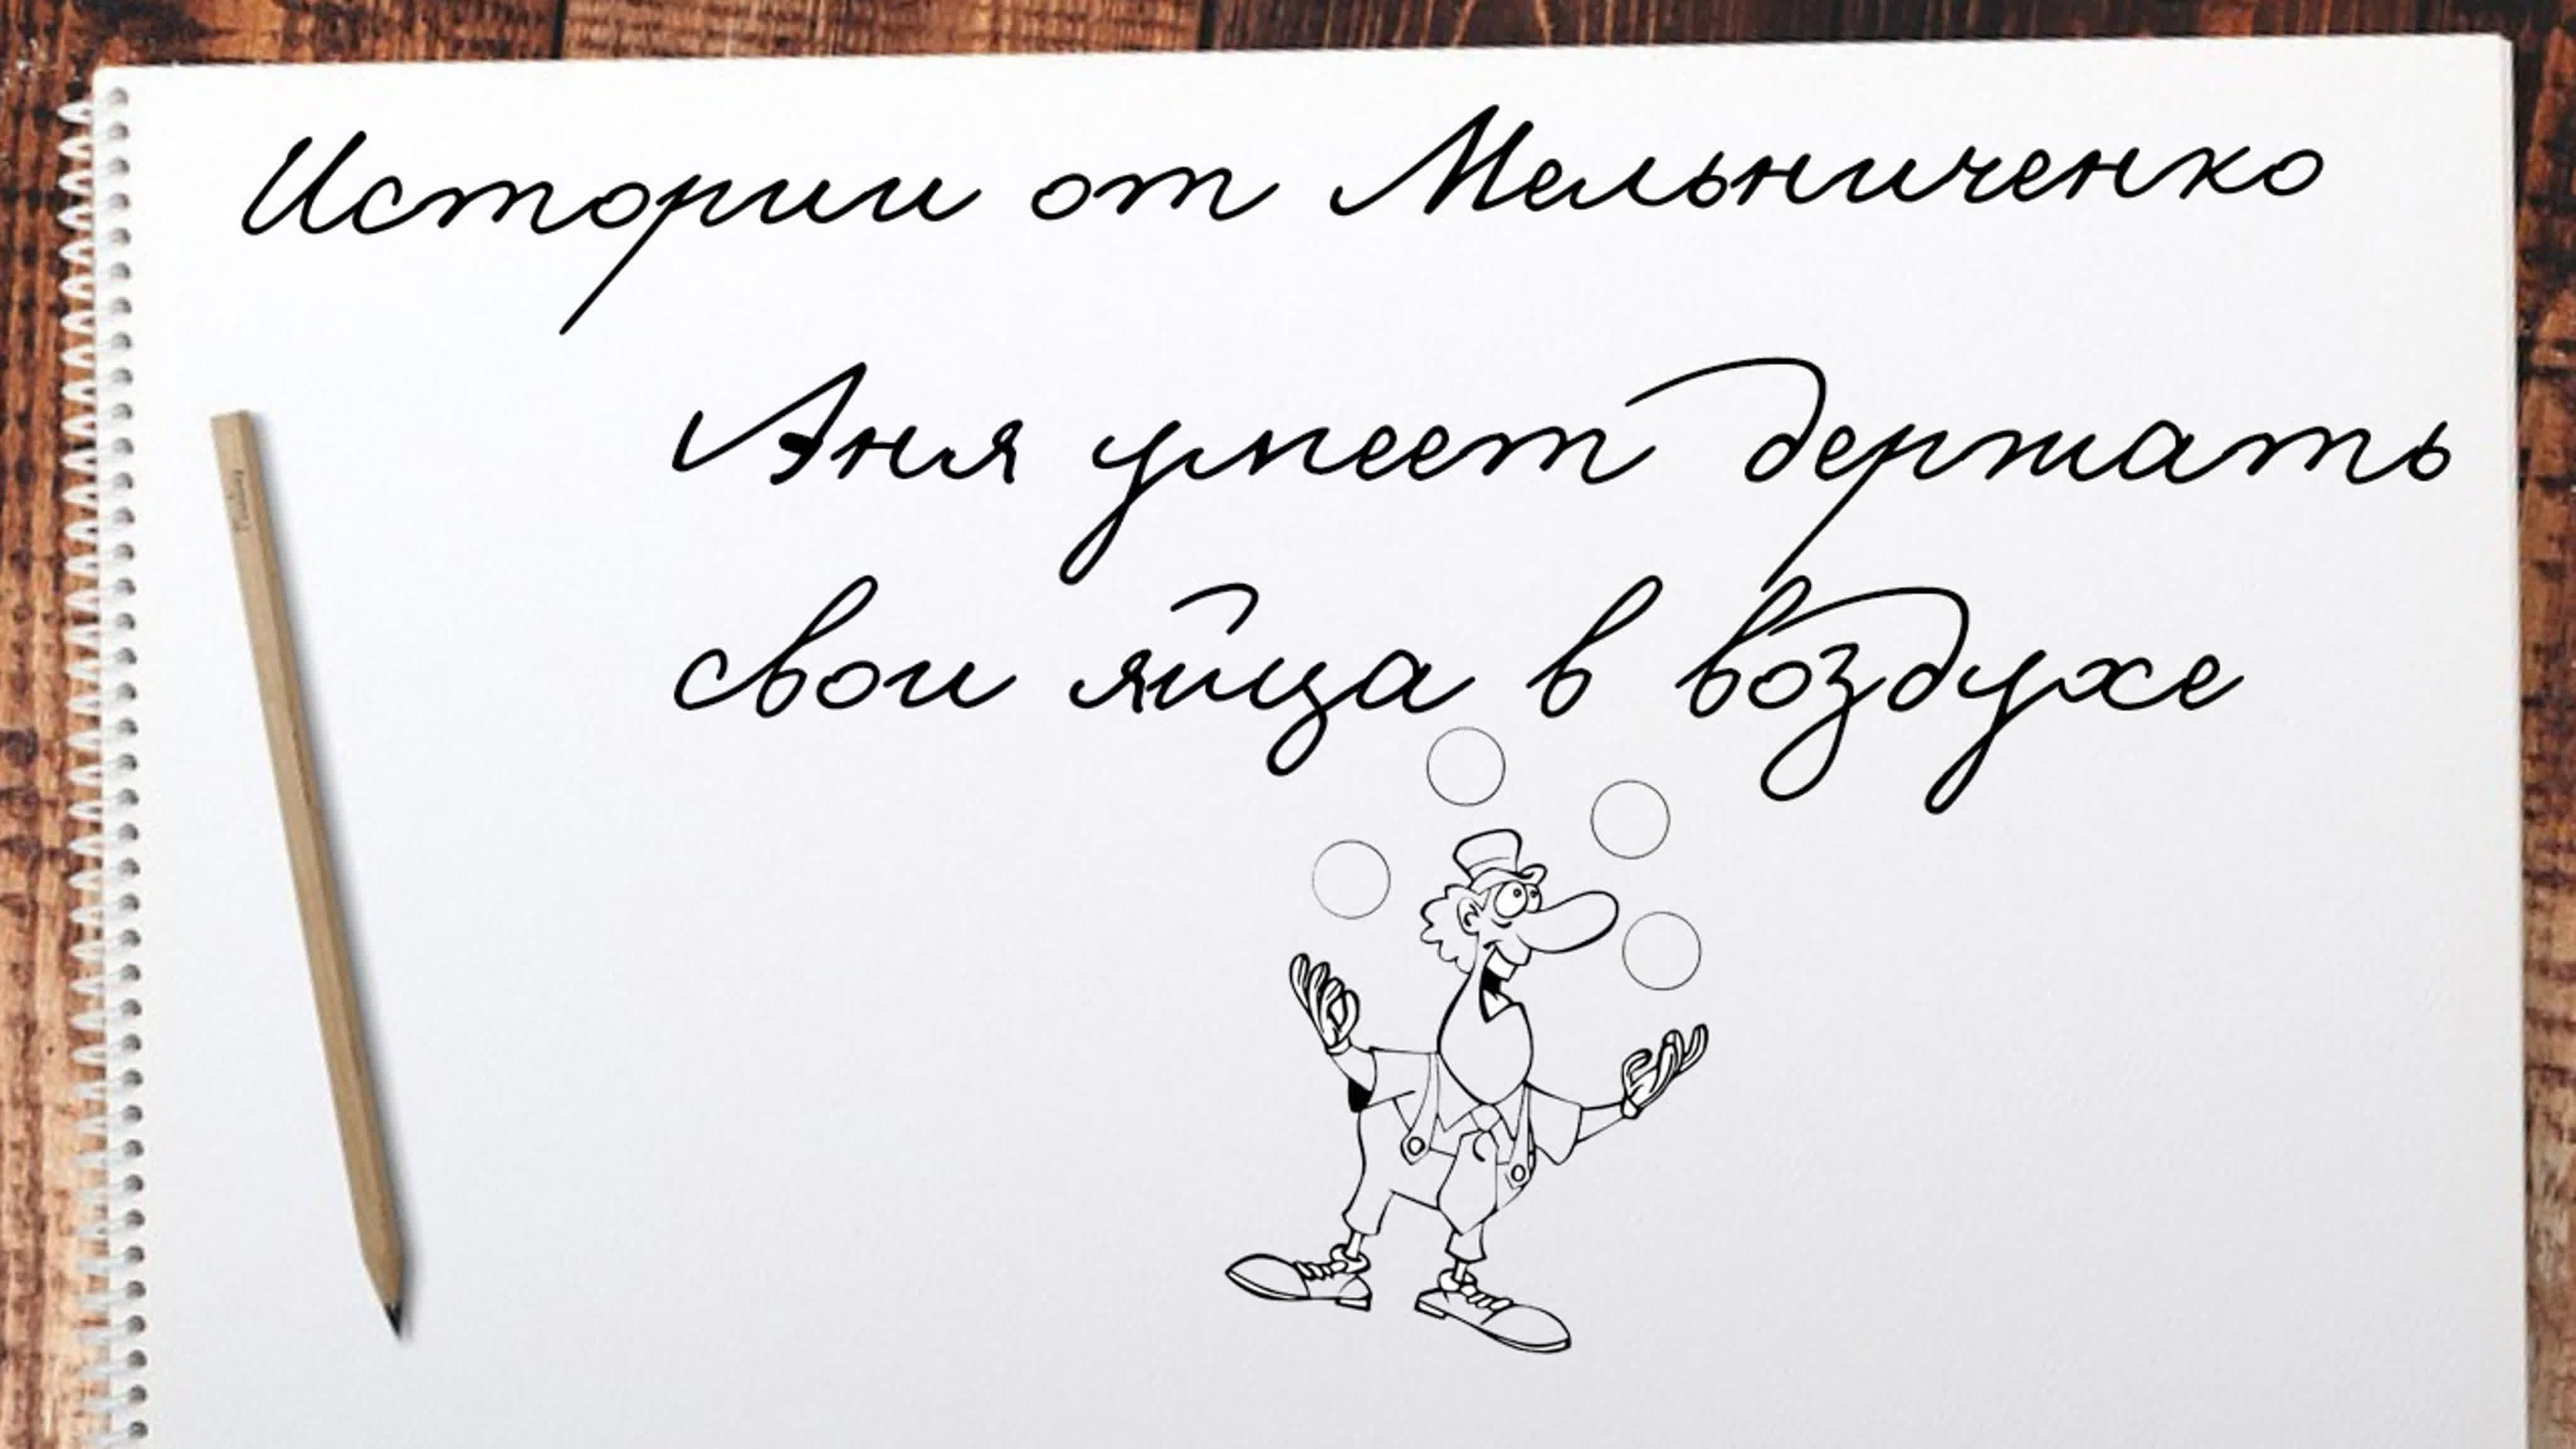 Истории от Мельниченко
Аня умеет держать
свои яйца в воздухе